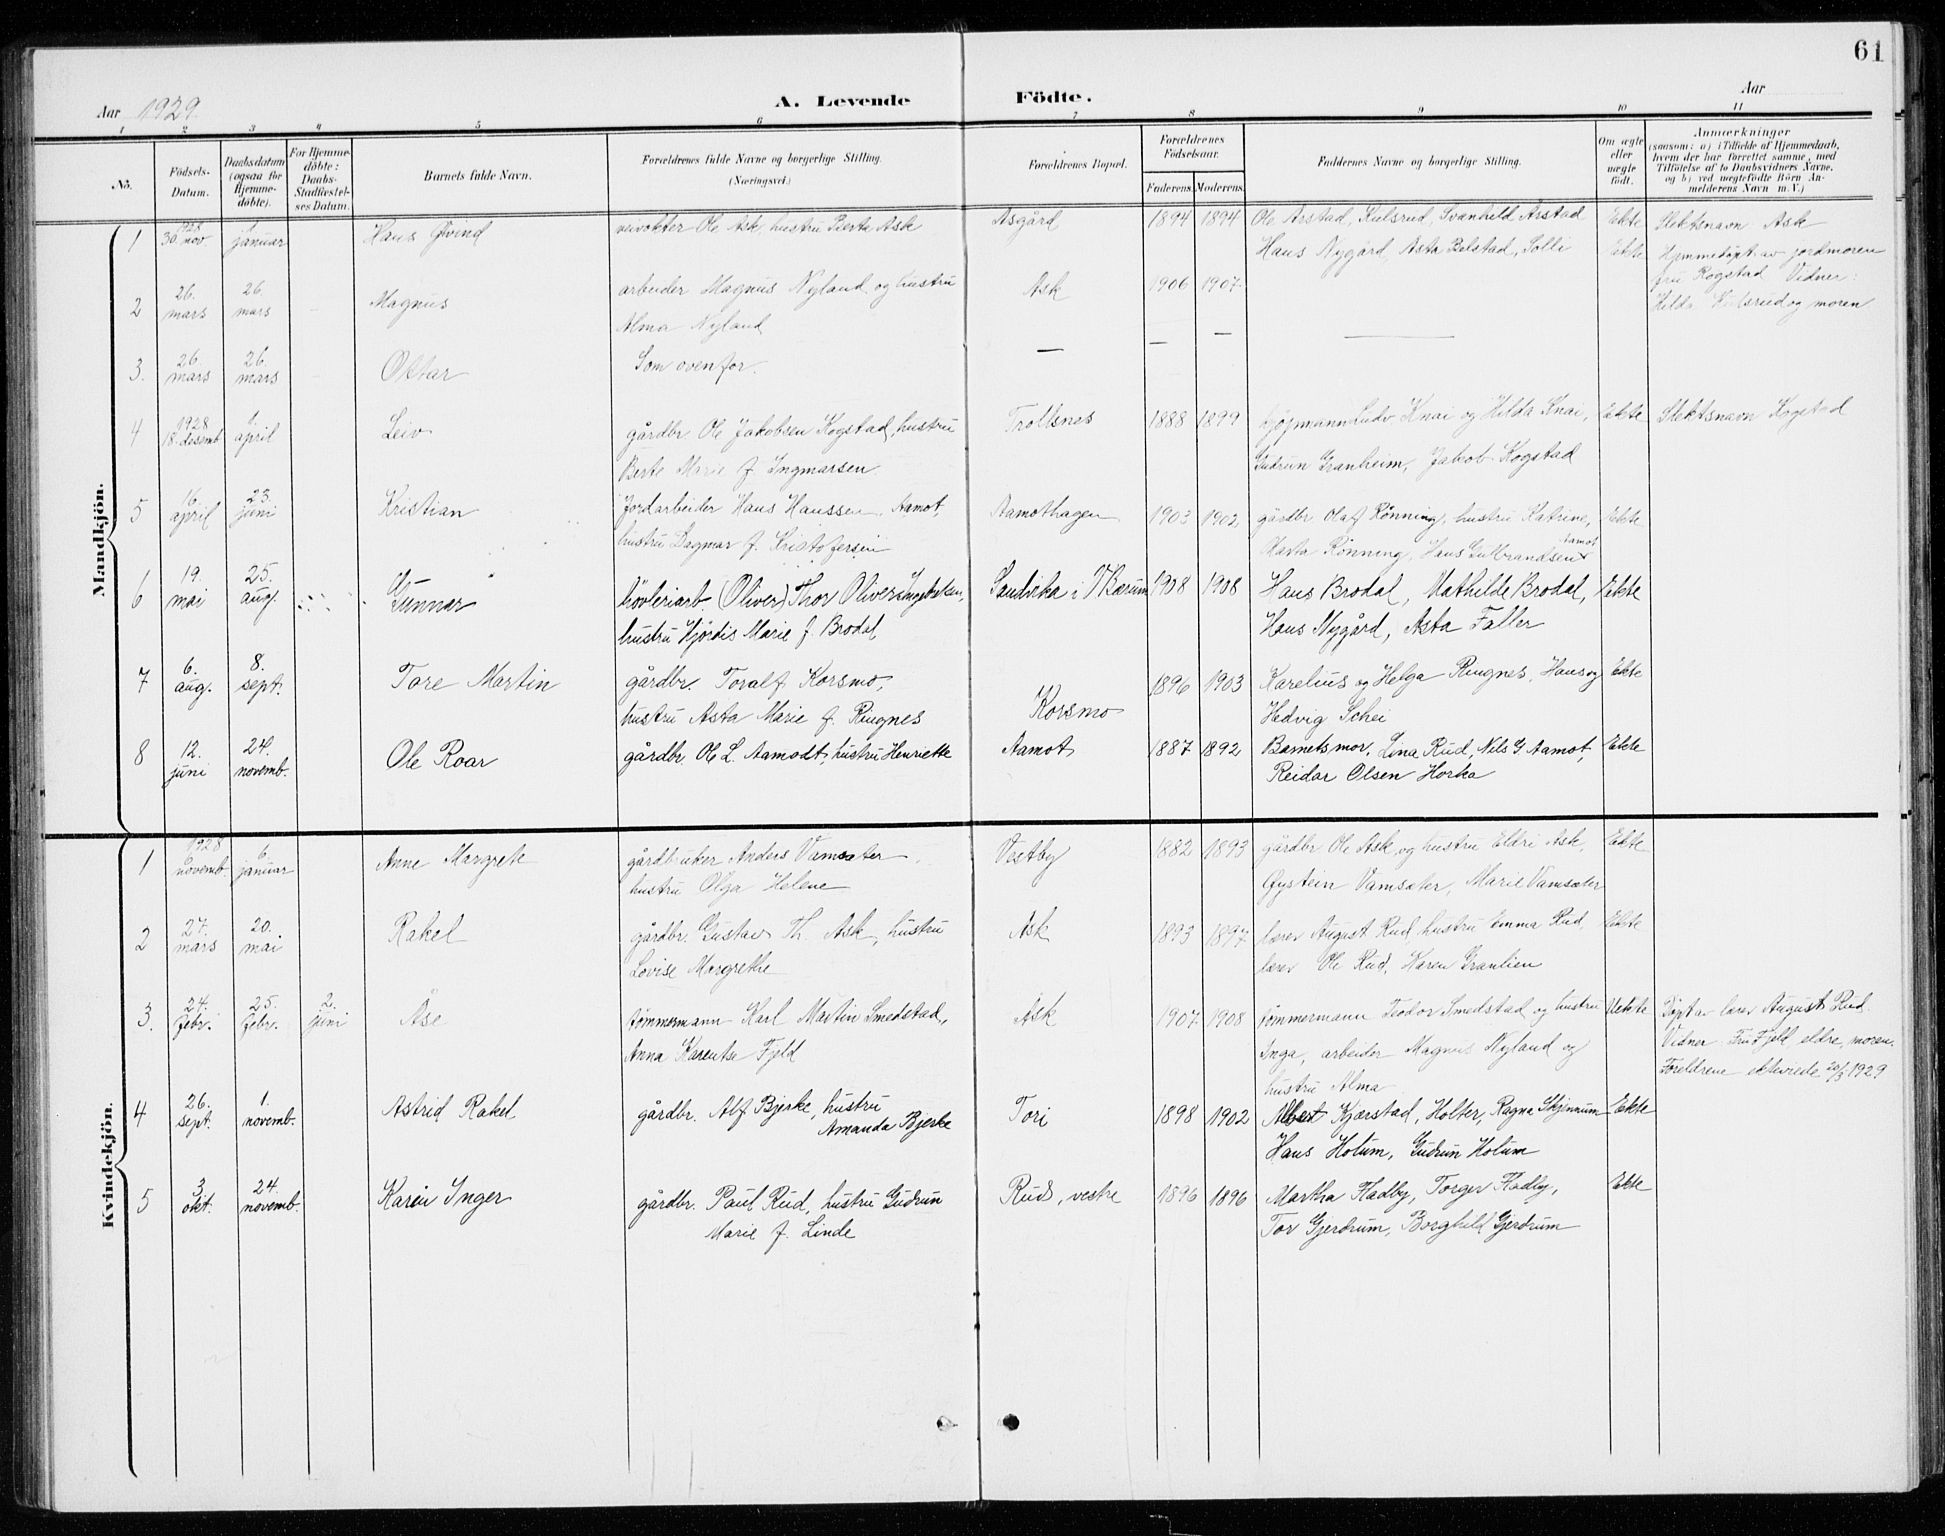 61
Aar 1929.
A. Levende Födte.
Aar
1 2 3 4 5 6 7 8 9 10 11
No.
Födsels-Datum.
Daabsdatum (ogsaa for Hjemme-döbte).
For Hjemme-döbte: Daabs-Stadfæstelses Datum.
Barnets fulde Navn.
Forældrenes fulde Navne og borgerlige Stilling. (Næringsvei.)
Forældrenes Bopæl.
Forældrenes Födselsaar.
Faderens. Moderens.
Faddernes Navne og borgerlige Stilling.
Om ægte eller uægte födt.
Anmærkninger
(saasom: a) i Tilfælde af Hjemmedaab,
hvem der har forrettet samme, med
Tilföielse af to Daabsvidners Navne,
og b) ved uægtefödte Börn An-
melderens Navn m. V.)
Mandkjön.
1 1928 30. nov 1 januar Hans Øvind veivokter Ole Ask, hustru Berte Ask Åsgård 1894 1894 Ole Arstad, Kulsrud, Svanhild Arstad Ekte Slektsnavn Ask
Hans Nygård, Asta Bølstad, Solli
2 26. mars 26. mars Magnus arbeider Magnus Nyland og hustru Ask 1906 1907 Ekte Hjemmedøpt av jordmoren
Alma Nyland — — — fru Rogstad Vidner:
Hilda Kulsrud og moren
3. 26. mars 26. mars Ottar Som ovenfor. —
4 1928 18. desemb 1 april Leiv gårdbr Ole Jakobsen Kogstad, hustru Trollsnes 1888 1899 kjøpmann Ludv. Knai og Hilda Knai, Ekte Slektsnavn Kogstad
Berte Marie f. Ingmarsen. Gudrun Granheim, Jakob Kogstad
5 16. april 23. juni Kristian Jordarbeider Hans Hanssen, Aamot, Aamothagen 1903 1902 gårdbr Olaf Rønning, hustru Katrine, Ekte
hustru Dagmar f. Kristofersen Marta Rønning, Hans Gulbrandsen Aamot
6 19. mai 25. aug. Gunnar høvleriarb. (Oliver) Thor Oliver Sandvika i V Bærum 1908 1908 Hans Brodal, Mathilde Brodal, Ekte
hustru Hjördis Marie f. Brodal Hans Nygård, Asta Faller
7 6. aug. 8. sept. Tore Martin gårdbr. Toralf Korsmo, Korsmo 1896 1903 Karelius og Helga Ringnes, Hans og Ekte
hustru Asta Marie f. Ringnes Hedvig Schei
8 12. juni 24. novemb. Ole Roar gårdbr. Ole L. Aamodt, hustru Henriette Aamot 1887 1892 Barnets mor, Lina Rud, Nils G. Aamot, Ekte
Reidar Olsen Horka
Kvindekjön.
1 1928 6 novemb. 6. januar Anne Margrete gårdbruker Anders Vamsæter Vestby 1882 1893 gårdbr Ole Ask og hustru Eldri Ask, Ekte
hustru Olga Helene Øystein Vamsæter, Marie Vamsæter
2 27. mars 20. mai Rakel gårdbr. Gustav Th. Ask, hustru Ask 1893 1897 lærer August Rud, hustru Emma Rud, Ekte
Lovise Margrethe lærer Ole Rud, Karen Granlien
3. 24. febr. 25. febr. 2. juni Åse tømmermann Karl Martin Smedstad, Ask 1907 1908 tømmermann Teodor Smedstad og hustru Uekte Døpt av lærer August Rud.
Anna Karentse Fjeld Inga, arbeider Magnus Nyland og Vidner Fru Fjeld eldre, moren.
hustru Alma Foreldrene ekteviede 20/3 1929
4 26. sept. 1. novemb. Astrid Rakel gårdbr. Alf Bjerke, hustru Tori 1898 1902 Albert Kjærstad, Holter, Ragna Skjennum Ekte
Amanda Bjerke Hans Holum, Gudrun Holum
5 3 okt. 24. novemb. Karin Inger gårdbr. Paul Rud, hustru Gudrun Rud, vestre 1896 1896 Martha Fladby, Torger Fladby, Ekte
Marie f. Linde Tor Gjerdrum, Borghild Gjerdrum